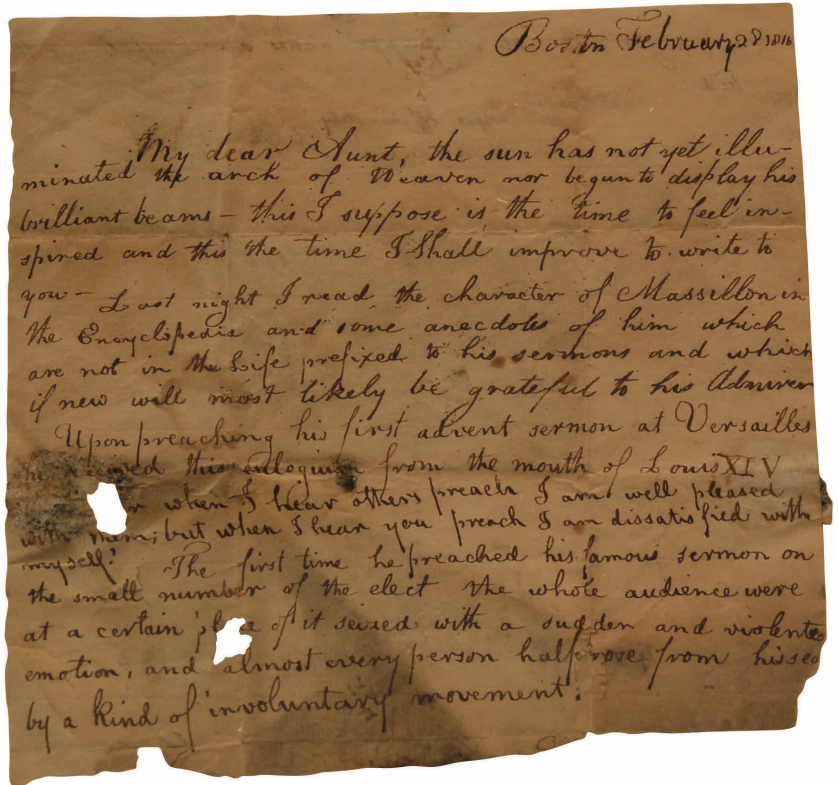 Boston February 28 1816
My dear Aunt, the sun has not yet illu-
minated the arch of Heaven nor begun to display his
brilliant beams - this I suppose is the time to feel in-
spired and this the time I Shall improve to write to
you - Last night I read the character of Massillon in
the Encyclopedia and some anecdotes of him which
are not in the Life prefixed to his sermons and which
if new will most likely be grateful to his Admirer
Upon preaching his first advent sermon at Versailles
he received this eulogium from the mouth of Louis XIV
when I hear others preach I am well pleased
with them; but when I hear you preach I am dissatisfied with
myself! The first time he preached his famous sermon on
the small number of the elect the whole audience were
at a certain of it seized with a sudden and violent
emotion, and almost every person half rose from his
by a kind of involuntary movement.